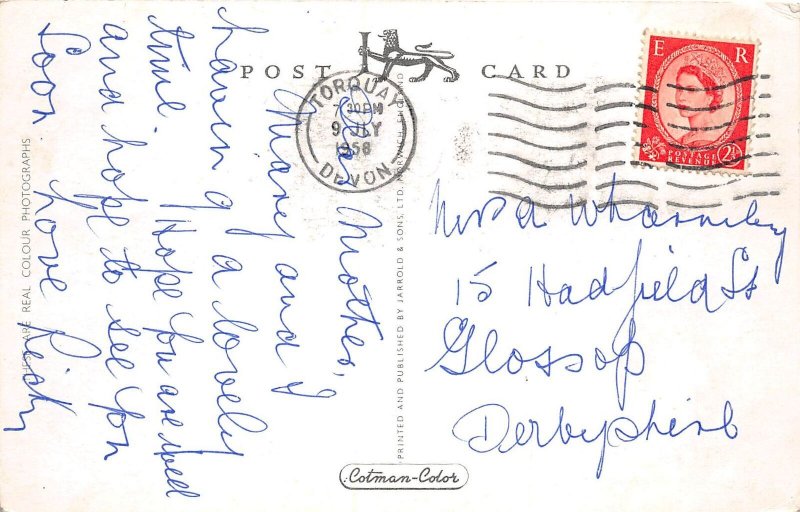 POST CARD
TORQUAY
30PM
9 JLY
1958
DEVON
E R
POSTAGE
REVENUE
2½
Dear Mother,
Mary and I
having of a lovely
time. Hope you are well
and hope to see you
Soon love
Mrs A Wharmby
15 Hadfield St
Glossop
Derbyshire
THESE ARE REAL COLOUR PHOTOGRAPHS
PRINTED AND PUBLISHED BY JARROLD & SONS, LTD. NORWICH, ENGLAND
Cotman-Color